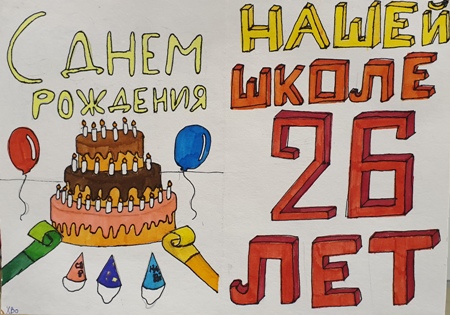 С ДНЕМ
РОЖДЕНИЯ
НАШЕЙ
ШКОЛЕ
26
ЛЕТ